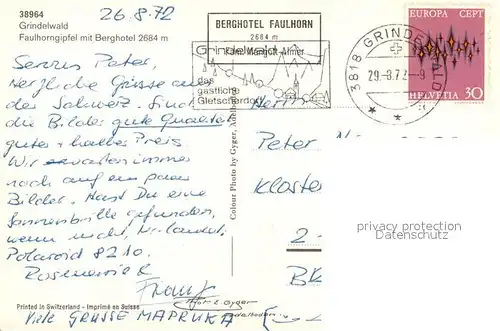 38964
Grindelwald
Faulhorngipfel mit Berghotel 2684 m
26.8.72
BERGHOTEL FAULHORN
2684 m
Fam. Almer
Grindelwald
das
gastliche
Gletscherdorf
3818 GRINDELWALD
29-8.72-9
EUROPA CEPT
HELVETIA 30
Servus Peter,
Herzliche Grüsse aus
der Schweiz. Sind
die Bilder gute Qualität
guter + halber Preis.
Wir erwarten immer
noch auf ein paar
Bilder. Hast Du eine
Sonnenbrille gefunden,
wenn nicht,
Polaroid 8210.
Rosemarie &
Franz
Viele GRÜSSE MAPRUKA
Colour Photo by Gyger, Adelboden
Herrn
Peter
Kloster
Printed in Switzerland - Imprimé en Suisse
Gyger
Adelboden
privacy protection
Datenschutz